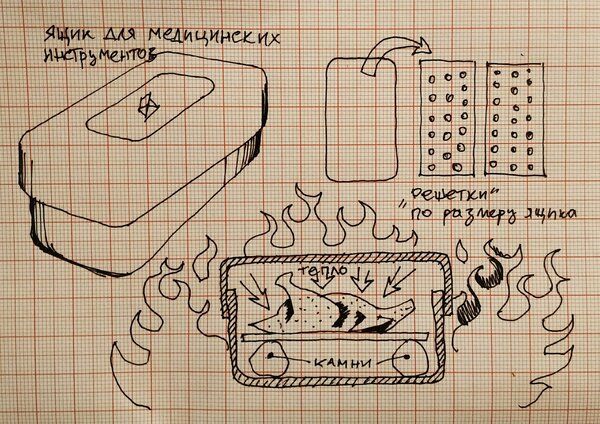 ящик для медицинских
инструментов
„решетки“
по размеру ящика
тепло
камни